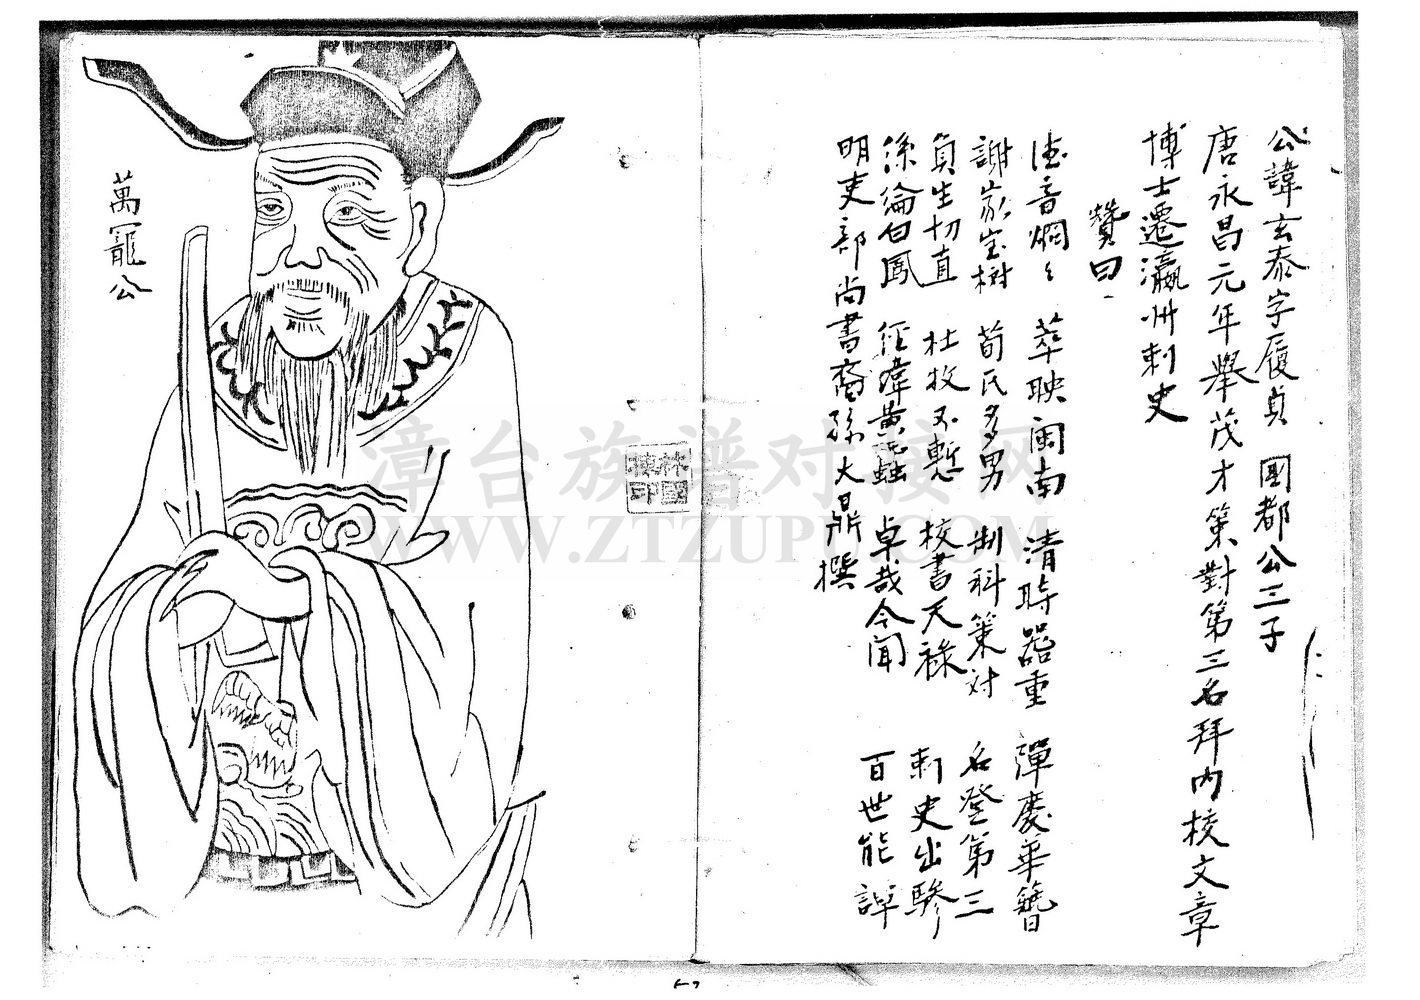 公諱玄泰字履貞 團都公三子
唐永昌元年舉茂才策對第三名拜內校文章
博士遷瀛州刺史
贊曰
德音烱々 萃映閩南 清時器重 彈慶華簪
謝家宝樹 荀氏多男 制科策対 名登第三
負生切直 杜牧不慙 校書天祿 刺史出驂
絲綸白鳳 經緯黄 卓哉令聞 百世能譚
明吏部尚書裔孫大鼎撰
萬寵公
林國棟印
漳台族谱对接网
WWW.ZTZUPU.COM